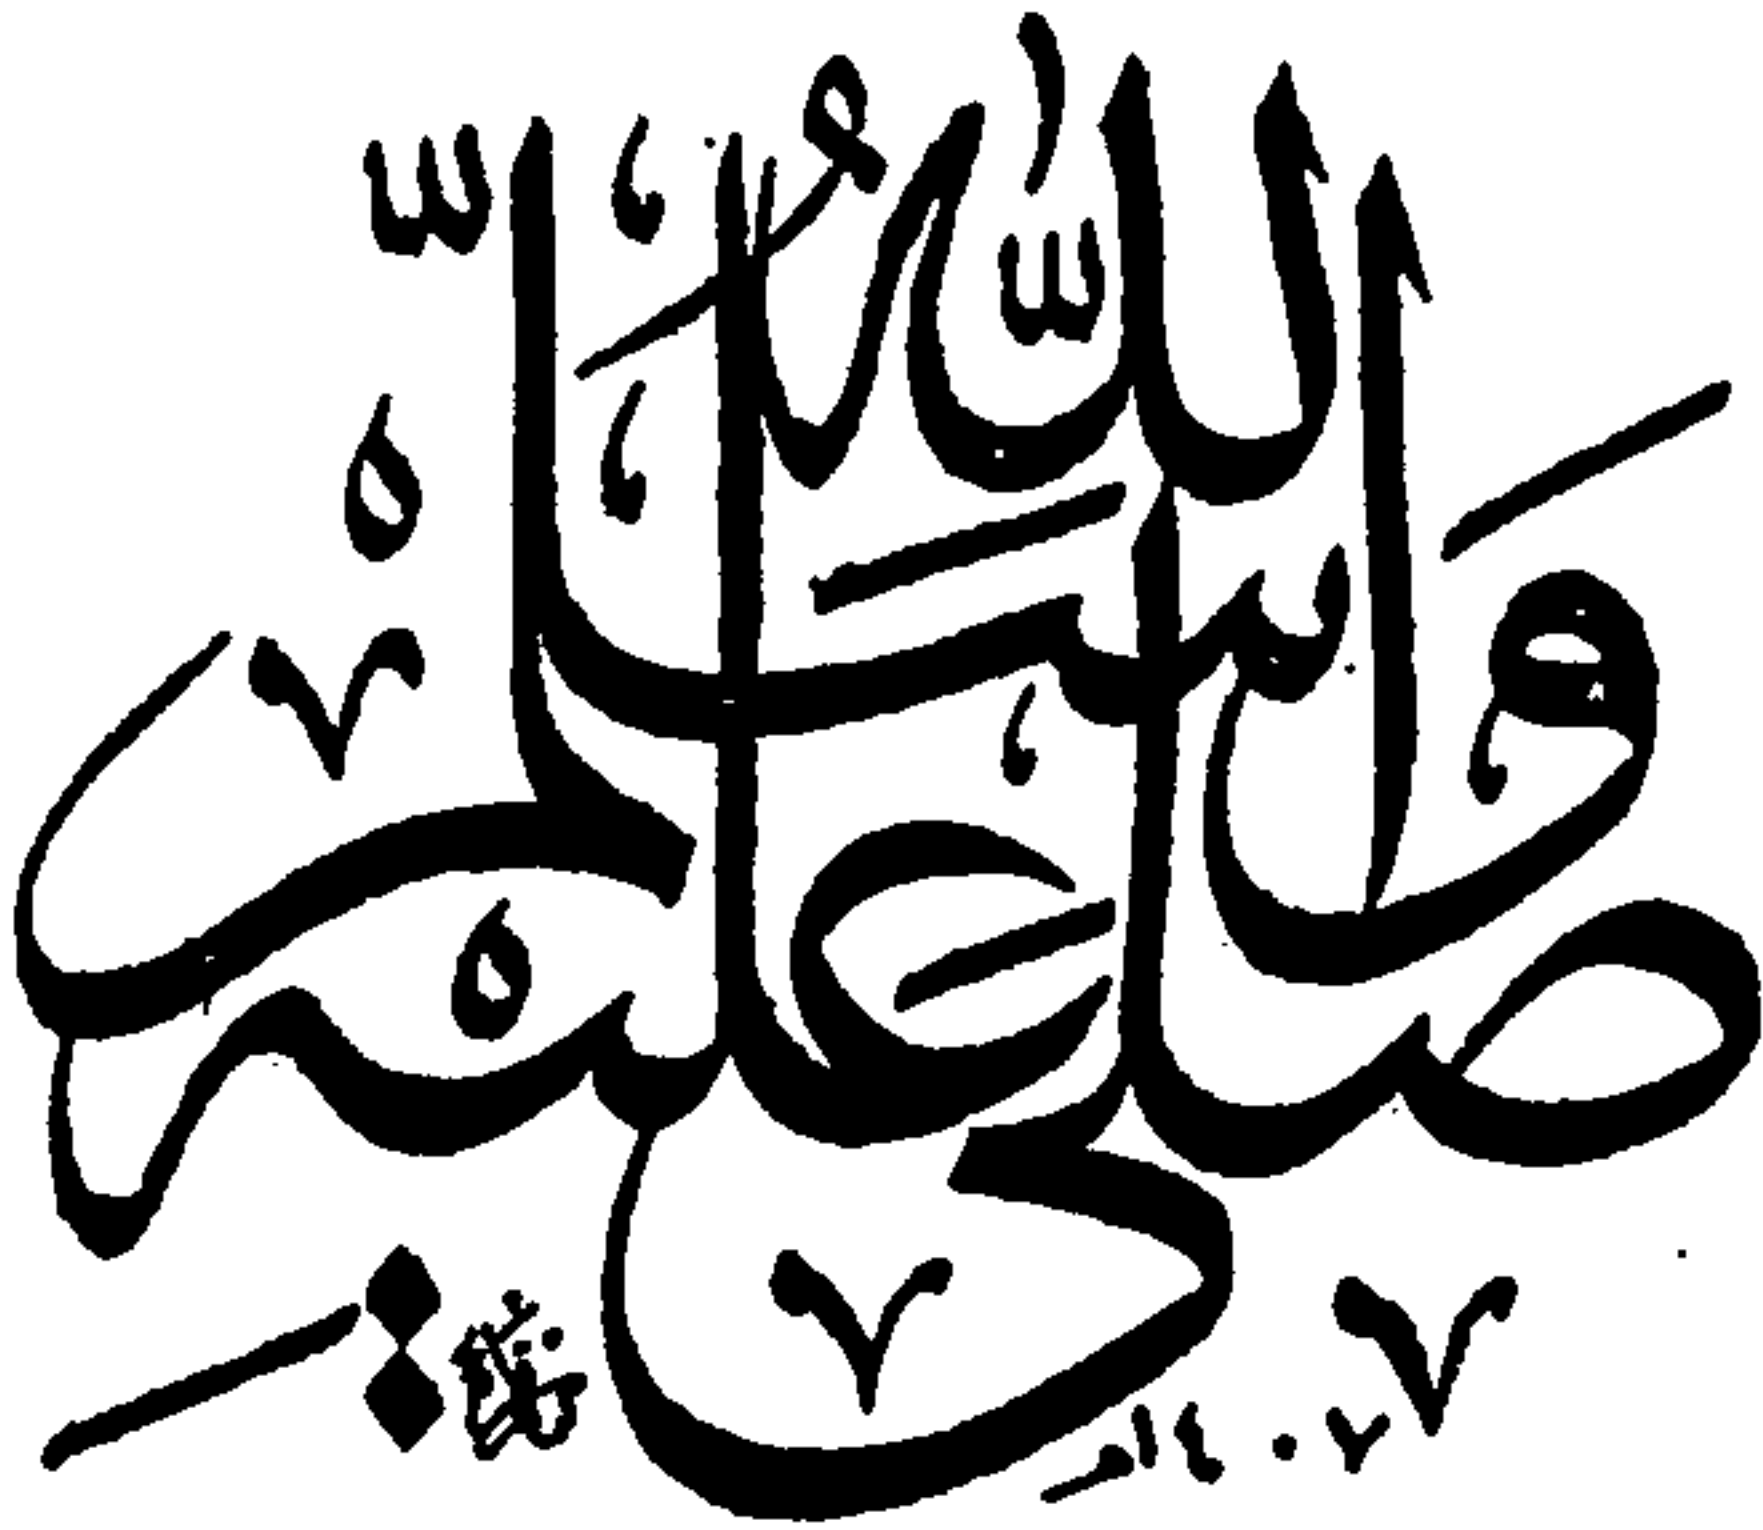 صلى الله عليه وسلم
١٤٠٢